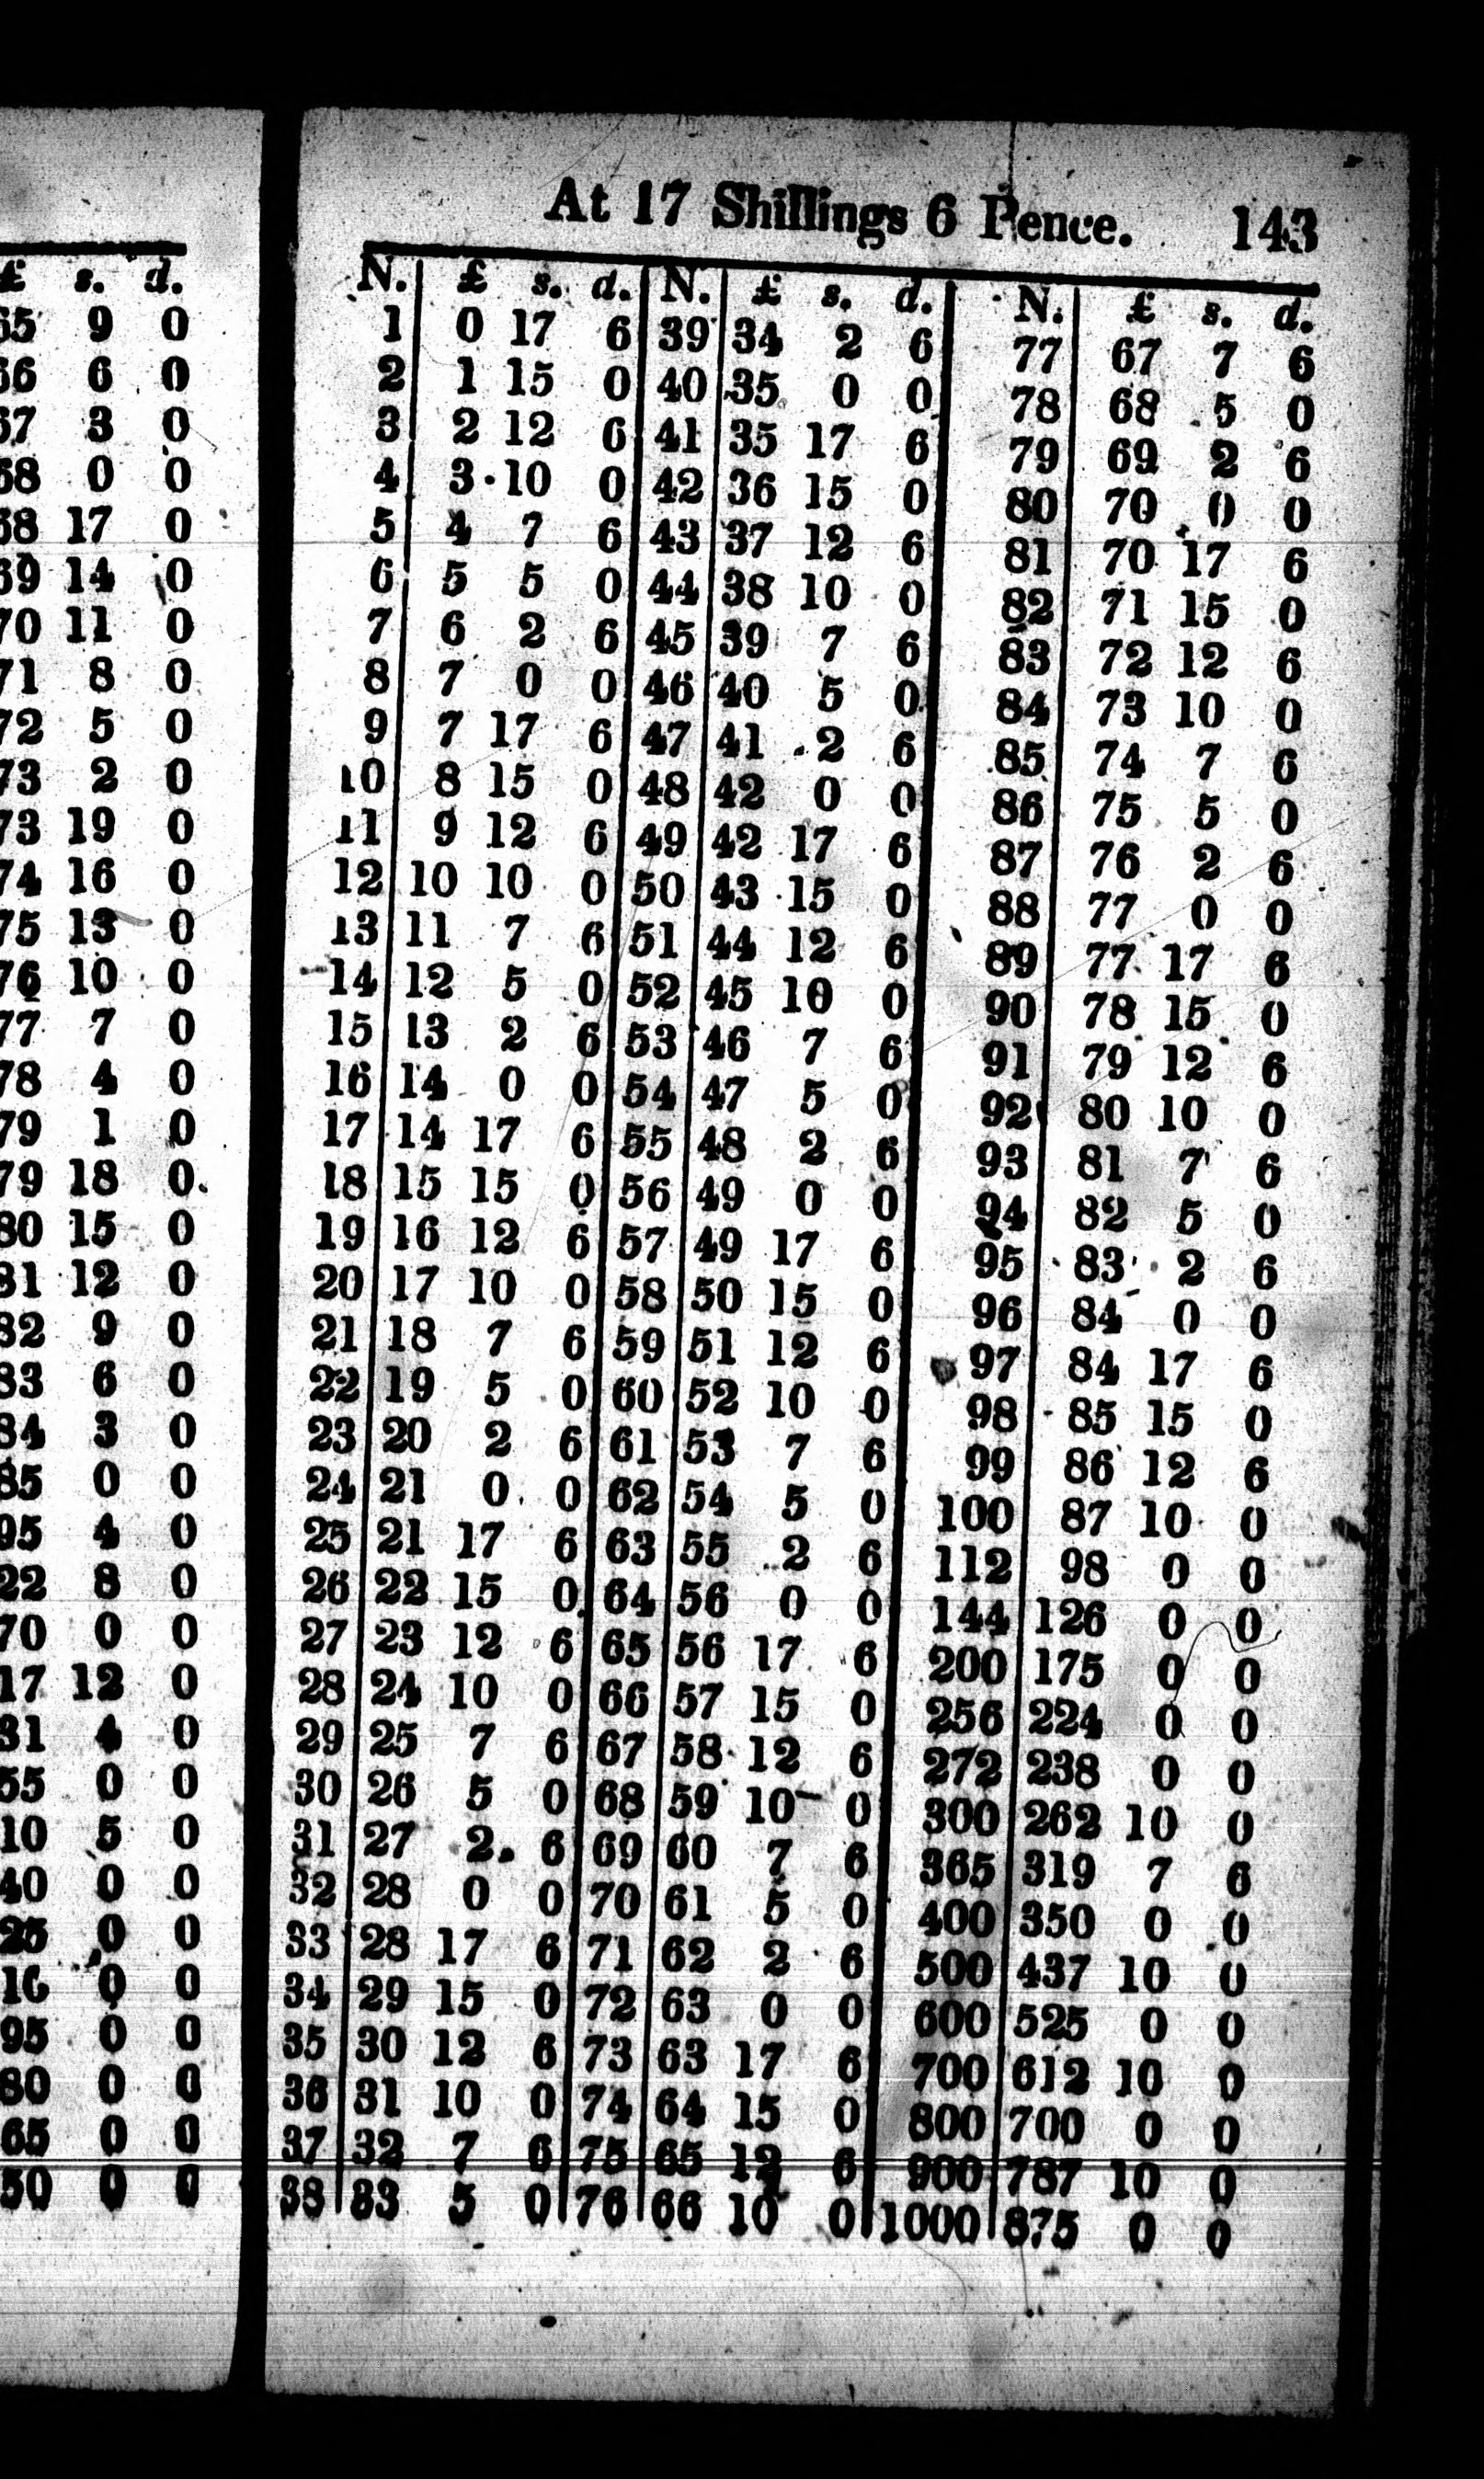 £ s. d.
65 9 0
66 6 0
67 3 0
68 0 0
68 17 0
69 14 0
70 11 0
71 8 0
72 5 0
73 2 0
73 19 0
74 16 0
75 13 0
76 10 0
77 7 0
78 4 0
79 1 0
79 18 0
80 15 0
81 12 0
82 9 0
83 6 0
84 3 0
85 0 0
95 4 0
22 8 0
70 0 0
17 12 0
31 4 0
55 0 0
10 5 0
40 0 0
25 0 0
10 0 0
95 0 0
80 0 0
65 0 0
50 0 0
At 17 Shillings 6 Pence. 143
N. £ s. d. N. £ s. d. N. £ s. d.
1 0 17 6 39 34 2 6 77 67 7 6
2 1 15 0 40 35 0 0 78 68 5 0
3 2 12 6 41 35 17 6 79 69 2 6
4 3 10 0 42 36 15 0 80 70 0 0
5 4 7 6 43 37 12 6 81 70 17 6
6 5 5 0 44 38 10 0 82 71 15 0
7 6 2 6 45 39 7 6 83 72 12 6
8 7 0 0 46 40 5 0 84 73 10 0
9 7 17 6 47 41 2 6 85 74 7 6
10 8 15 0 48 42 0 0 86 75 5 0
11 9 12 6 49 42 17 6 87 76 2 6
12 10 10 0 50 43 15 0 88 77 0 0
13 11 7 6 51 44 12 6 89 77 17 6
14 12 5 0 52 45 10 0 90 78 15 0
15 13 2 6 53 46 7 6 91 79 12 6
16 14 0 0 54 47 5 0 92 80 10 0
17 14 17 6 55 48 2 6 93 81 7 6
18 15 15 0 56 49 0 0 94 82 5 0
19 16 12 6 57 49 17 6 95 83 2 6
20 17 10 0 58 50 15 0 96 84 0 0
21 18 7 6 59 51 12 6 97 84 17 6
22 19 5 0 60 52 10 0 98 85 15 0
23 20 2 6 61 53 7 6 99 86 12 6
24 21 0 0 62 54 5 0 100 87 10 0
25 21 17 6 63 55 2 6 112 98 0 0
26 22 15 0 64 56 0 0 144 126 0 0
27 23 12 6 65 56 17 6 200 175 0 0
28 24 10 0 66 57 15 0 256 224 0 0
29 25 7 6 67 58 12 6 272 238 0 0
30 26 5 0 68 59 10 0 300 262 10 0
31 27 2 6 69 60 7 6 365 319 7 6
32 28 0 0 70 61 5 0 400 350 0 0
33 28 17 6 71 62 2 6 500 437 10 0
34 29 15 0 72 63 0 0 600 525 0 0
35 30 12 6 73 63 17 6 700 612 10 0
36 31 10 0 74 64 15 0 800 700 0 0
37 32 7 6 75 65 12 6 900 787 10 0
38 33 5 0 76 66 10 0 1000 875 0 0